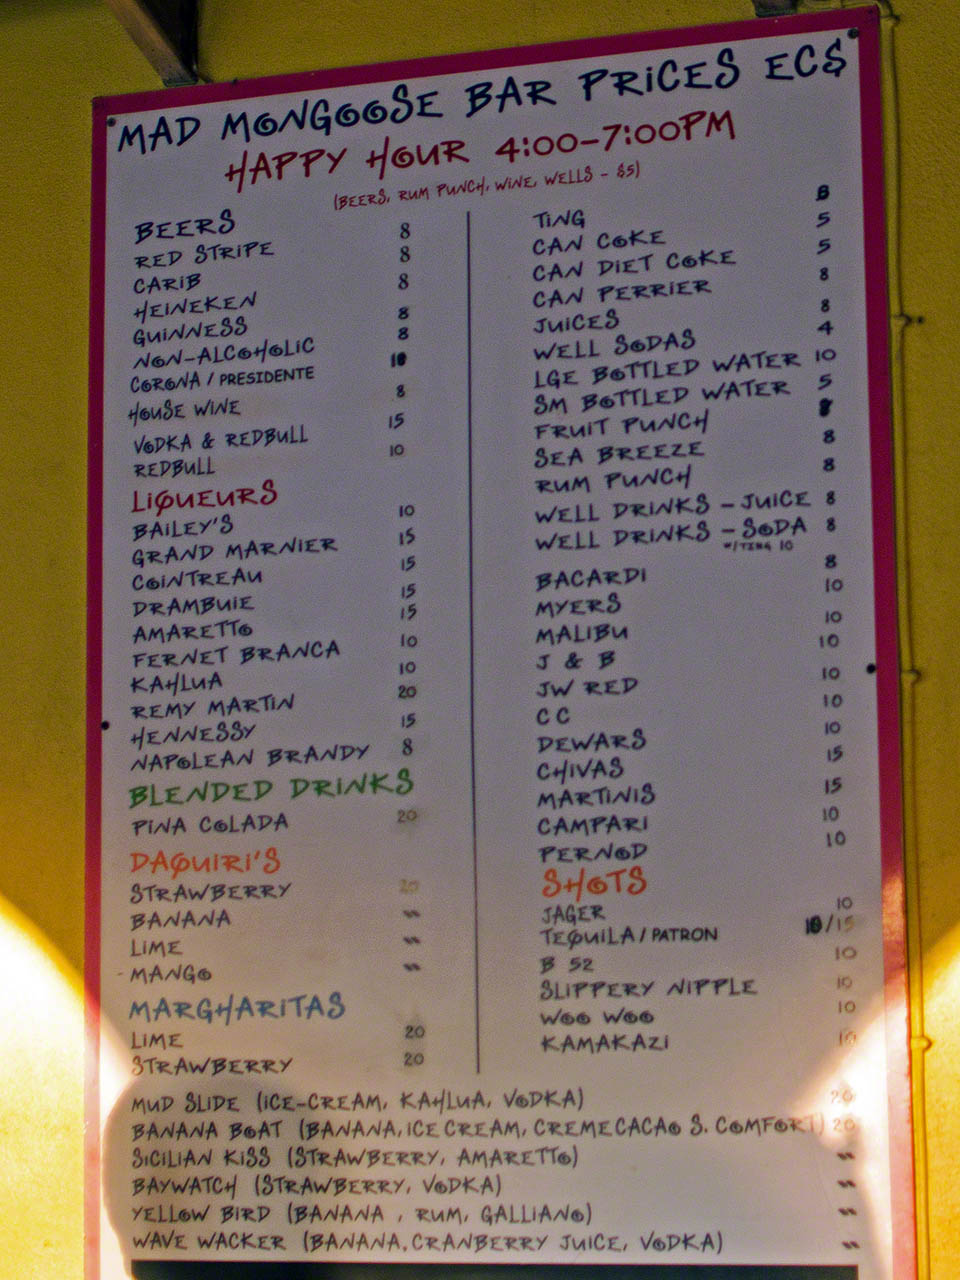 MAD MONGOOSE BAR PRICES EC$
HAPPY HOUR 4:00-7:00PM
(BEERS, RUM PUNCH, WINE, WELLS - $5)
BEERS
RED STRIPE 8
CARIB 8
HEINEKEN 8
GUINNESS 8
NON-ALCOHOLIC 8
CORONA / PRESIDENTE 10
HOUSE WINE 8
VODKA & REDBULL 15
REDBULL 10
LIQUEURS
BAILEY'S 10
GRAND MARNIER 15
COINTREAU 15
DRAMBUIE 15
AMARETTO 15
FERNET BRANCA 10
KAHLUA 10
REMY MARTIN 20
HENNESSY 15
NAPOLEAN BRANDY 8
BLENDED DRINKS
PINA COLADA 20
DAQUIRI'S
STRAWBERRY 20
BANANA "
LIME "
- MANGO "
MARGHARITAS
LIME 20
STRAWBERRY 20
TING 8
CAN COKE 5
CAN DIET COKE 5
CAN PERRIER 8
JUICES 8
WELL SODAS 4
LGE BOTTLED WATER 10
SM BOTTLED WATER 5
FRUIT PUNCH 8
SEA BREEZE 8
RUM PUNCH 8
WELL DRINKS - JUICE 8
WELL DRINKS - SODA 8
W/TING 10
BACARDI 8
MYERS 10
MALIBU 10
J & B 10
JW RED 10
CC 10
DEWARS 10
CHIVAS 15
MARTINIS 15
CAMPARI 10
PERNOD 10
SHOTS
JAGER 10
TEQUILA / PATRON 10/15
B 52 10
SLIPPERY NIPPLE 10
WOO WOO 10
KAMAKAZI 10
MUD SLIDE (ICE-CREAM, KAHLUA, VODKA) 20
BANANA BOAT (BANANA, ICE CREAM, CREMECACAO S. COMFORT) 20
SICILIAN KISS (STRAWBERRY, AMARETTO) "
BAYWATCH (STRAWBERRY, VODKA) "
YELLOW BIRD (BANANA , RUM, GALLIANO) "
WAVE WACKER (BANANA, CRANBERRY JUICE, VODKA) "